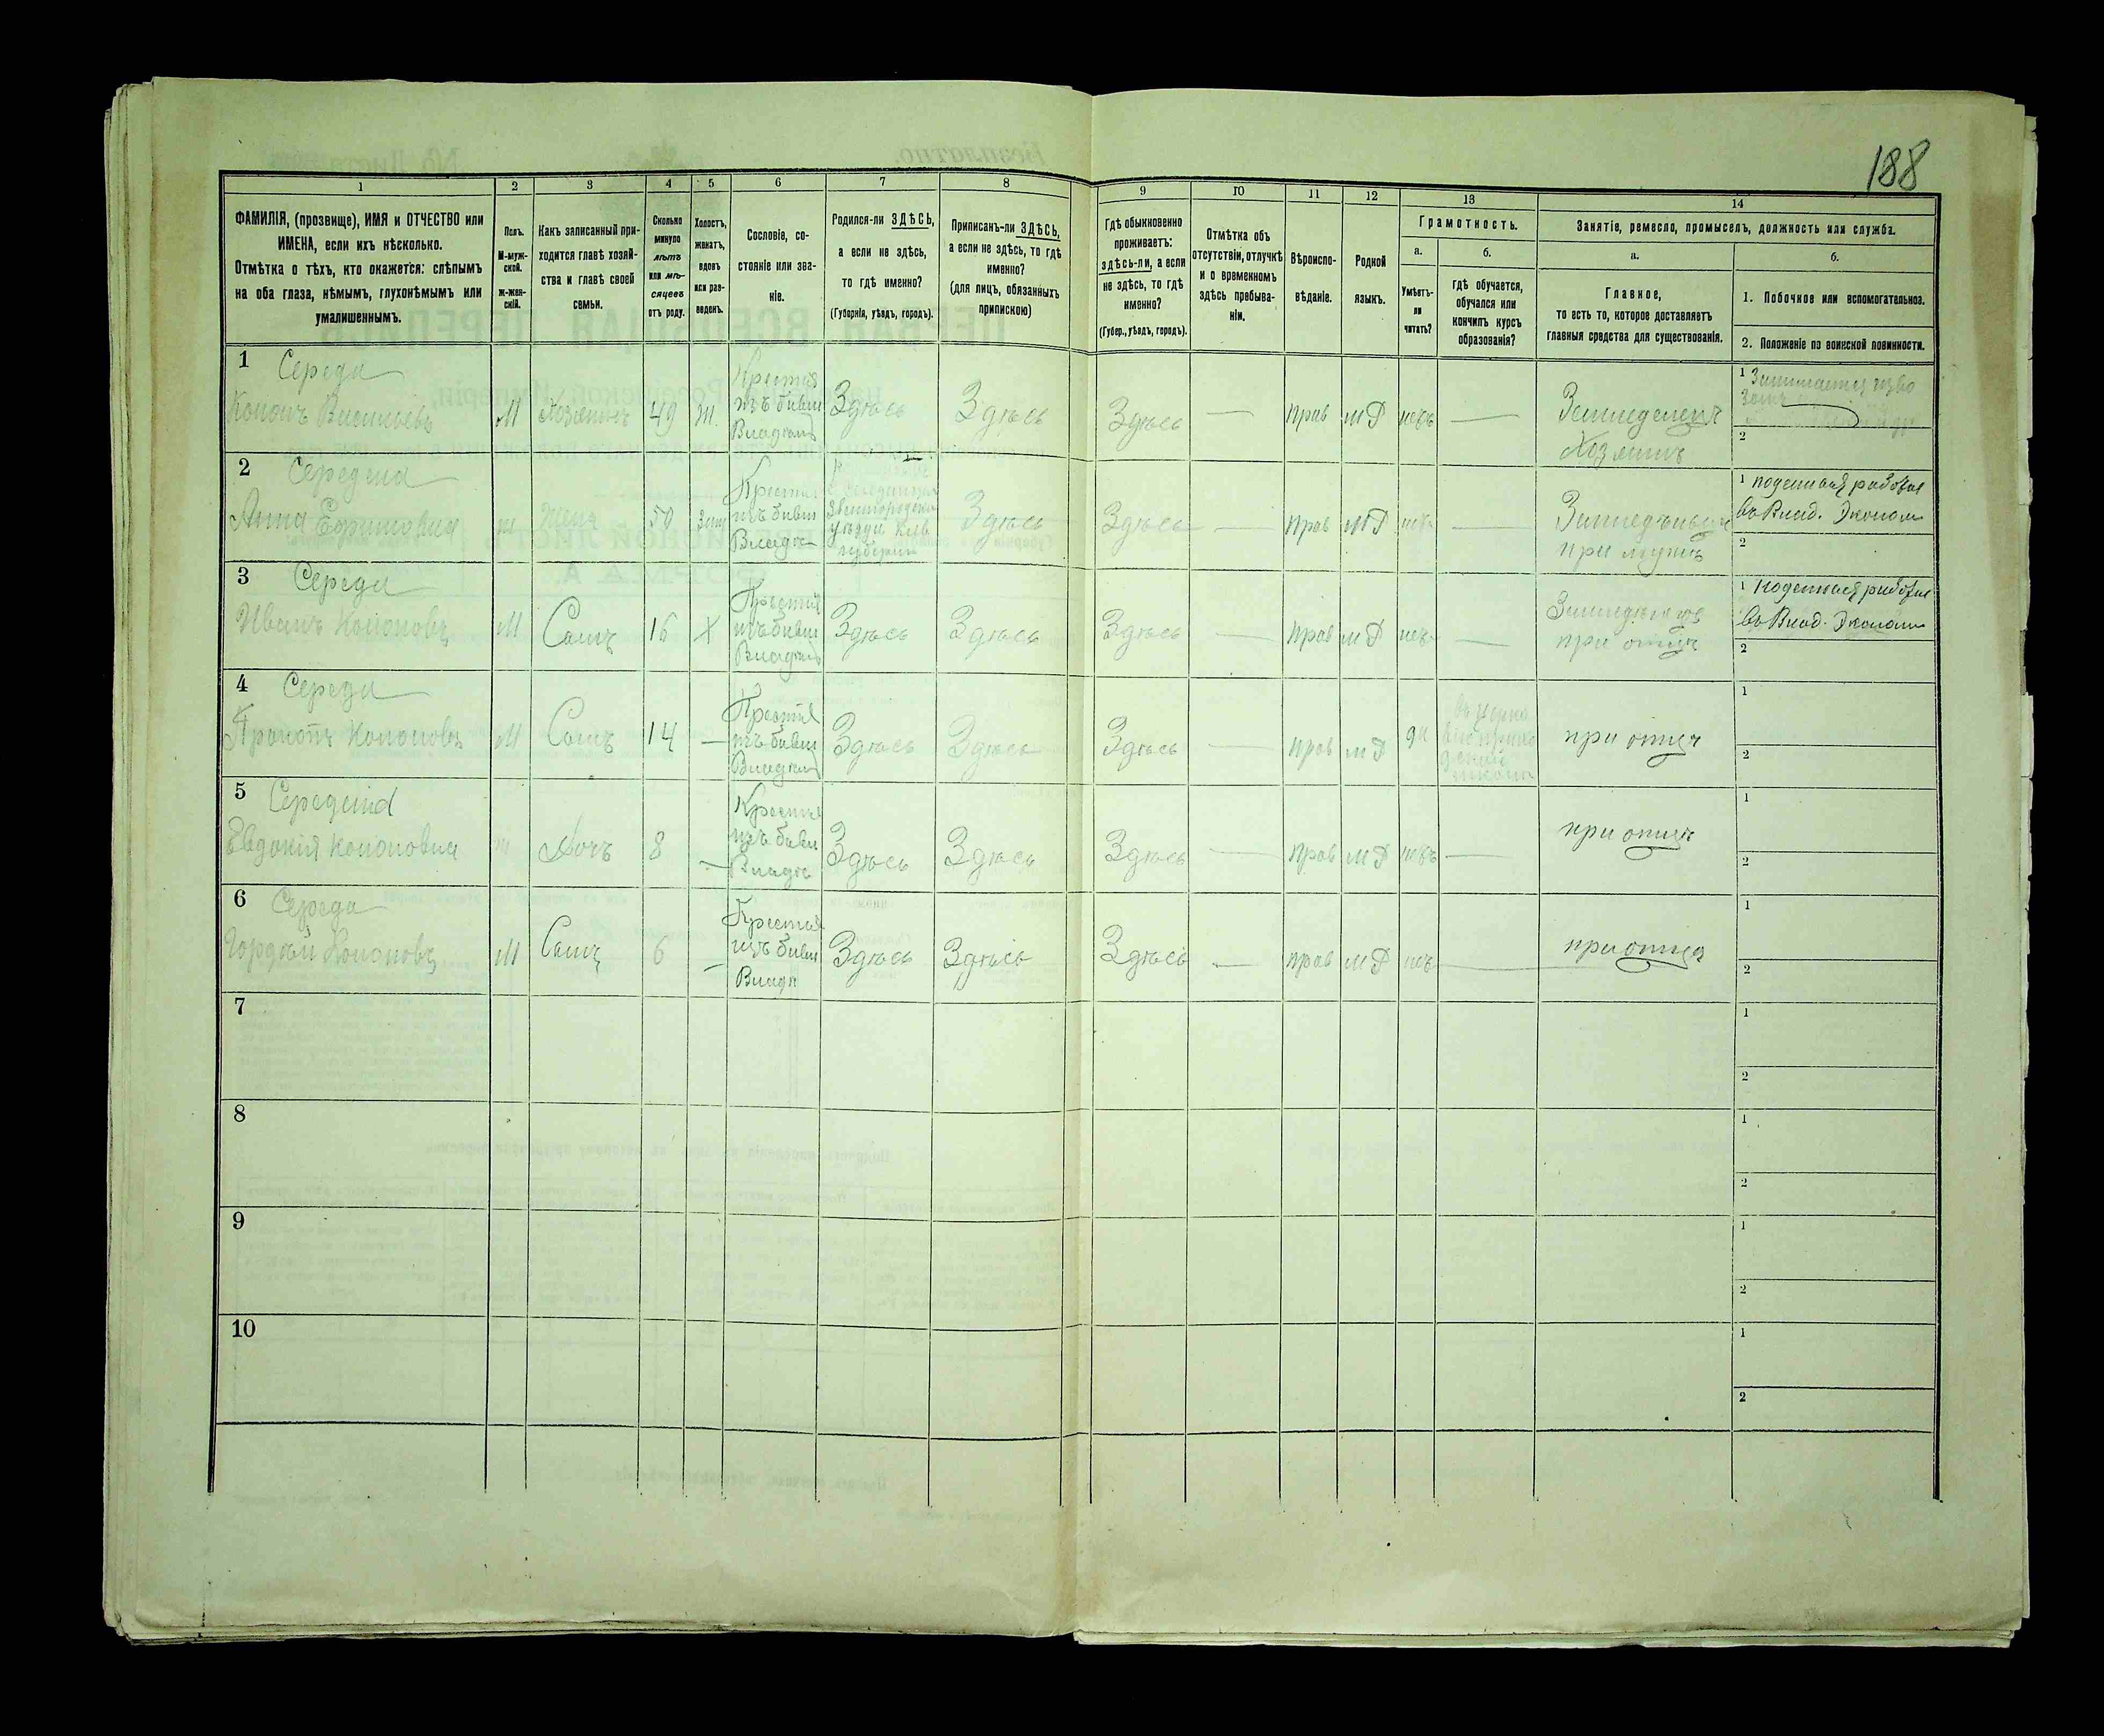 188
1
2
3
4
5
6
7
8
9
10
11
12
13
14
ФАМИЛІЯ, (прозвище), ИМЯ и ОТЧЕСТВО или
ИМЕНА, если ихъ нѣсколько.
Отмѣтка о тѣхъ, кто окажется: слѣпымъ
на оба глаза, нѣмымъ, глухонѣмымъ или
умалишеннымъ.
Полъ.
М-муж-
ской.
ж-жен-
скій.
Какъ записанный при-
ходится главѣ хозяй-
ства и главѣ своей
семьи.
Сколько
минуло
лѣтъ
или мѣ-
сяцевъ
отъ роду.
Холостъ,
женатъ,
вдовъ
или раз-
веденъ.
Сословіе, со-
стояніе или зва-
ніе.
Родился-ли ЗДѢСЬ,
а если не здѣсь,
то гдѣ именно?
(Губернія, уѣздъ, городъ).
Приписанъ-ли ЗДѢСЬ,
а если не здѣсь, то гдѣ
именно?
(для лицъ, обязанныхъ
припискою)
Гдѣ обыкновенно
проживаетъ:
здѣсь-ли, а если
не здѣсь, то гдѣ
именно?
(Губер., уѣздъ, городъ).
Отмѣтка объ
отсутствіи, отлучкѣ
и о временномъ
здѣсь пребыва-
ніи.
Вѣроиспо-
вѣданіе.
Родной
языкъ.
Грамотность.
а.
Умѣетъ-
ли
читать?
б.
гдѣ обучается,
обучался или
кончилъ курсъ
образованія?
Занятіе, ремесло, промыселъ, должность или служба.
а.
Главное,
то есть то, которое доставляетъ
главныя средства для существованія.
б.
1. Побочное или вспомогательное.
2. Положеніе по воинской повинности.
1 Середа
Кононъ Васильевъ
М
Хозяинъ
49
Ж.
Крестья
изъ бивш
Владѣл
Здѣсь
Здѣсь
Здѣсь
—
прав
мР
нѣтъ
—
Земледелецъ
Хозяинъ
1 Занимается изво
зомъ
2
2 Середина
Анна Ефимовна
ж
Жена
50
Зам
Крестья
изъ бивш
Владѣ
Звенигородскаго
уѣзда Кіев
губерніи
Здѣсь
Здѣсь
—
прав
мР
нѣтъ
—
при мужѣ
1 поденная работа
въ Влад. Эконом
2
3 Середа
Иванъ Кононовъ
М
Сынъ
16
Х
Крестья
изъ бивш
Владѣл
Здѣсь
Здѣсь
Здѣсь
—
прав
мР
нѣтъ
—
при отцѣ
1 поденная работа
въ Влад. Эконом
2
4 Середа
Кононовъ
М
Сынъ
14
—
Крестья
изъ бивш
Владѣл
Здѣсь
Здѣсь
Здѣсь
—
прав
мР
да
при отцѣ
1
2
5 Середина
Евдокія Кононовна
ж
Дочь
8
—
Крестья
изъ бивш
Владѣ
Здѣсь
Здѣсь
Здѣсь
—
прав
мР
нѣтъ
—
при отцѣ
1
2
6 Середа
Гордѣй Кононовъ
М
Сынъ
6
—
Крестья
изъ бивш
Владѣ
Здѣсь
Здѣсь
Здѣсь
—
прав
мР
нѣтъ
—
при отцѣ
1
2
7
1
2
8
1
2
9
1
2
10
1
2